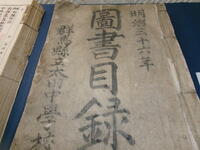 明治三十六年
圖書目録
群馬縣立太田中學校